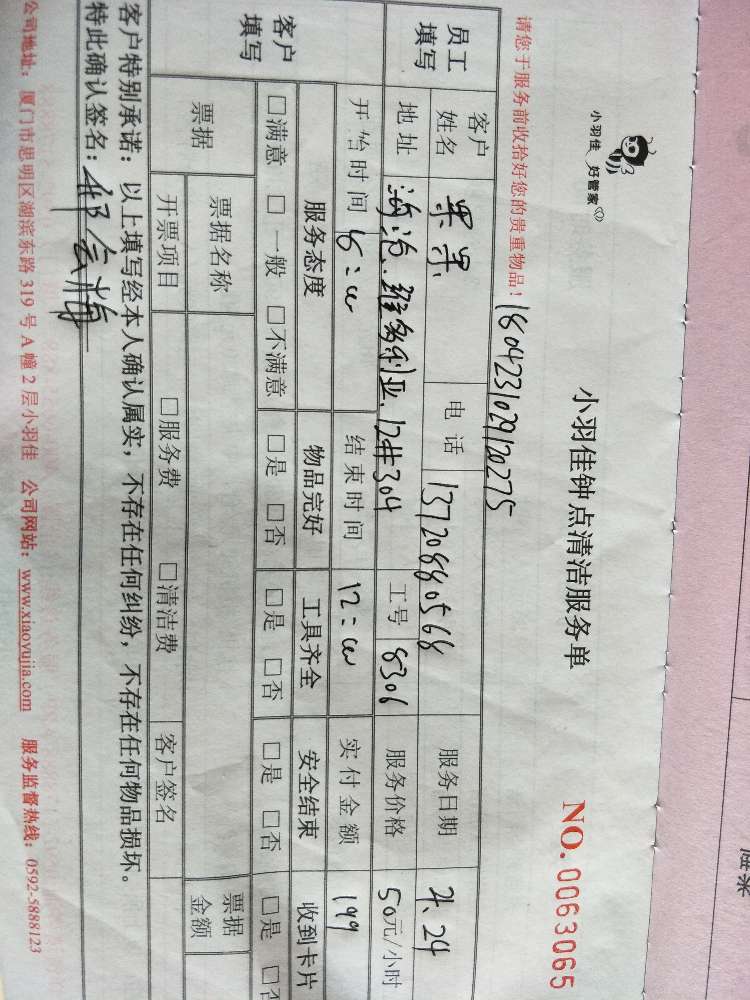 小羽佳 好管家
小羽佳钟点清洁服务单
NO. 0063065
请您于服务前收拾好您的贵重物品！ 180423102920275
员工填写 客户姓名 果果 电话 13720880568 服务日期 4.24
地址 海沧.维多利亚.12#304 工号 8306 服务价格 50元/小时
开始时间 结束时间 12:00 实付金额 199
客户填写 服务态度 物品完好 工具齐全 安全结束 收到卡片
□满意 □一般 □不满意 □是 □否 □是 □否 □是 □否 □是 □否
票据 票据名称 票据金额
开票项目 □服务费 □清洁费 客户签名
客户特别承诺：以上填写经本人确认属实，不存在任何纠纷，不存在任何物品损坏。
特此确认签名：
公司地址：厦门市思明区湖滨东路 319 号 A 幢 2 层小羽佳 公司网站：www.xiaoyujia.com 服务监督热线：0592-5888123